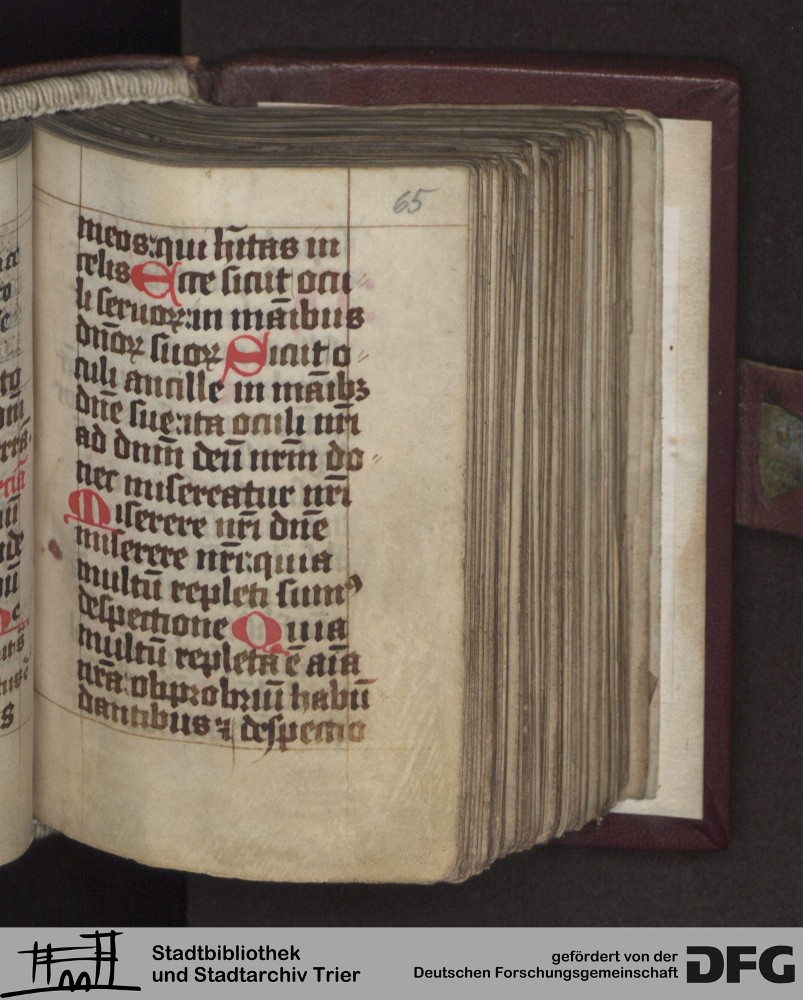 65
meos: qui hītas in
celis Ecce sicut ocu
li seruoꝝ: in māibus
dn̄oꝝ suoꝝ Sicut o
culi ancille in māibꝫ
dn̄e sue: ita oculi nr̄i
ad dnm̄ deū nrm̄ do
nec misereatur nr̄i
Miserere nr̄i dn̄e
miserere nr̄i: quia
multū repleti sumꝰ
despectione Quia
multū repleta ē aīa
nr̄a: obprobriū habū
dantibus ⁊ despectio
Stadtbibliothek
und Stadtarchiv Trier
gefördert von der
Deutschen Forschungsgemeinschaft
DFG